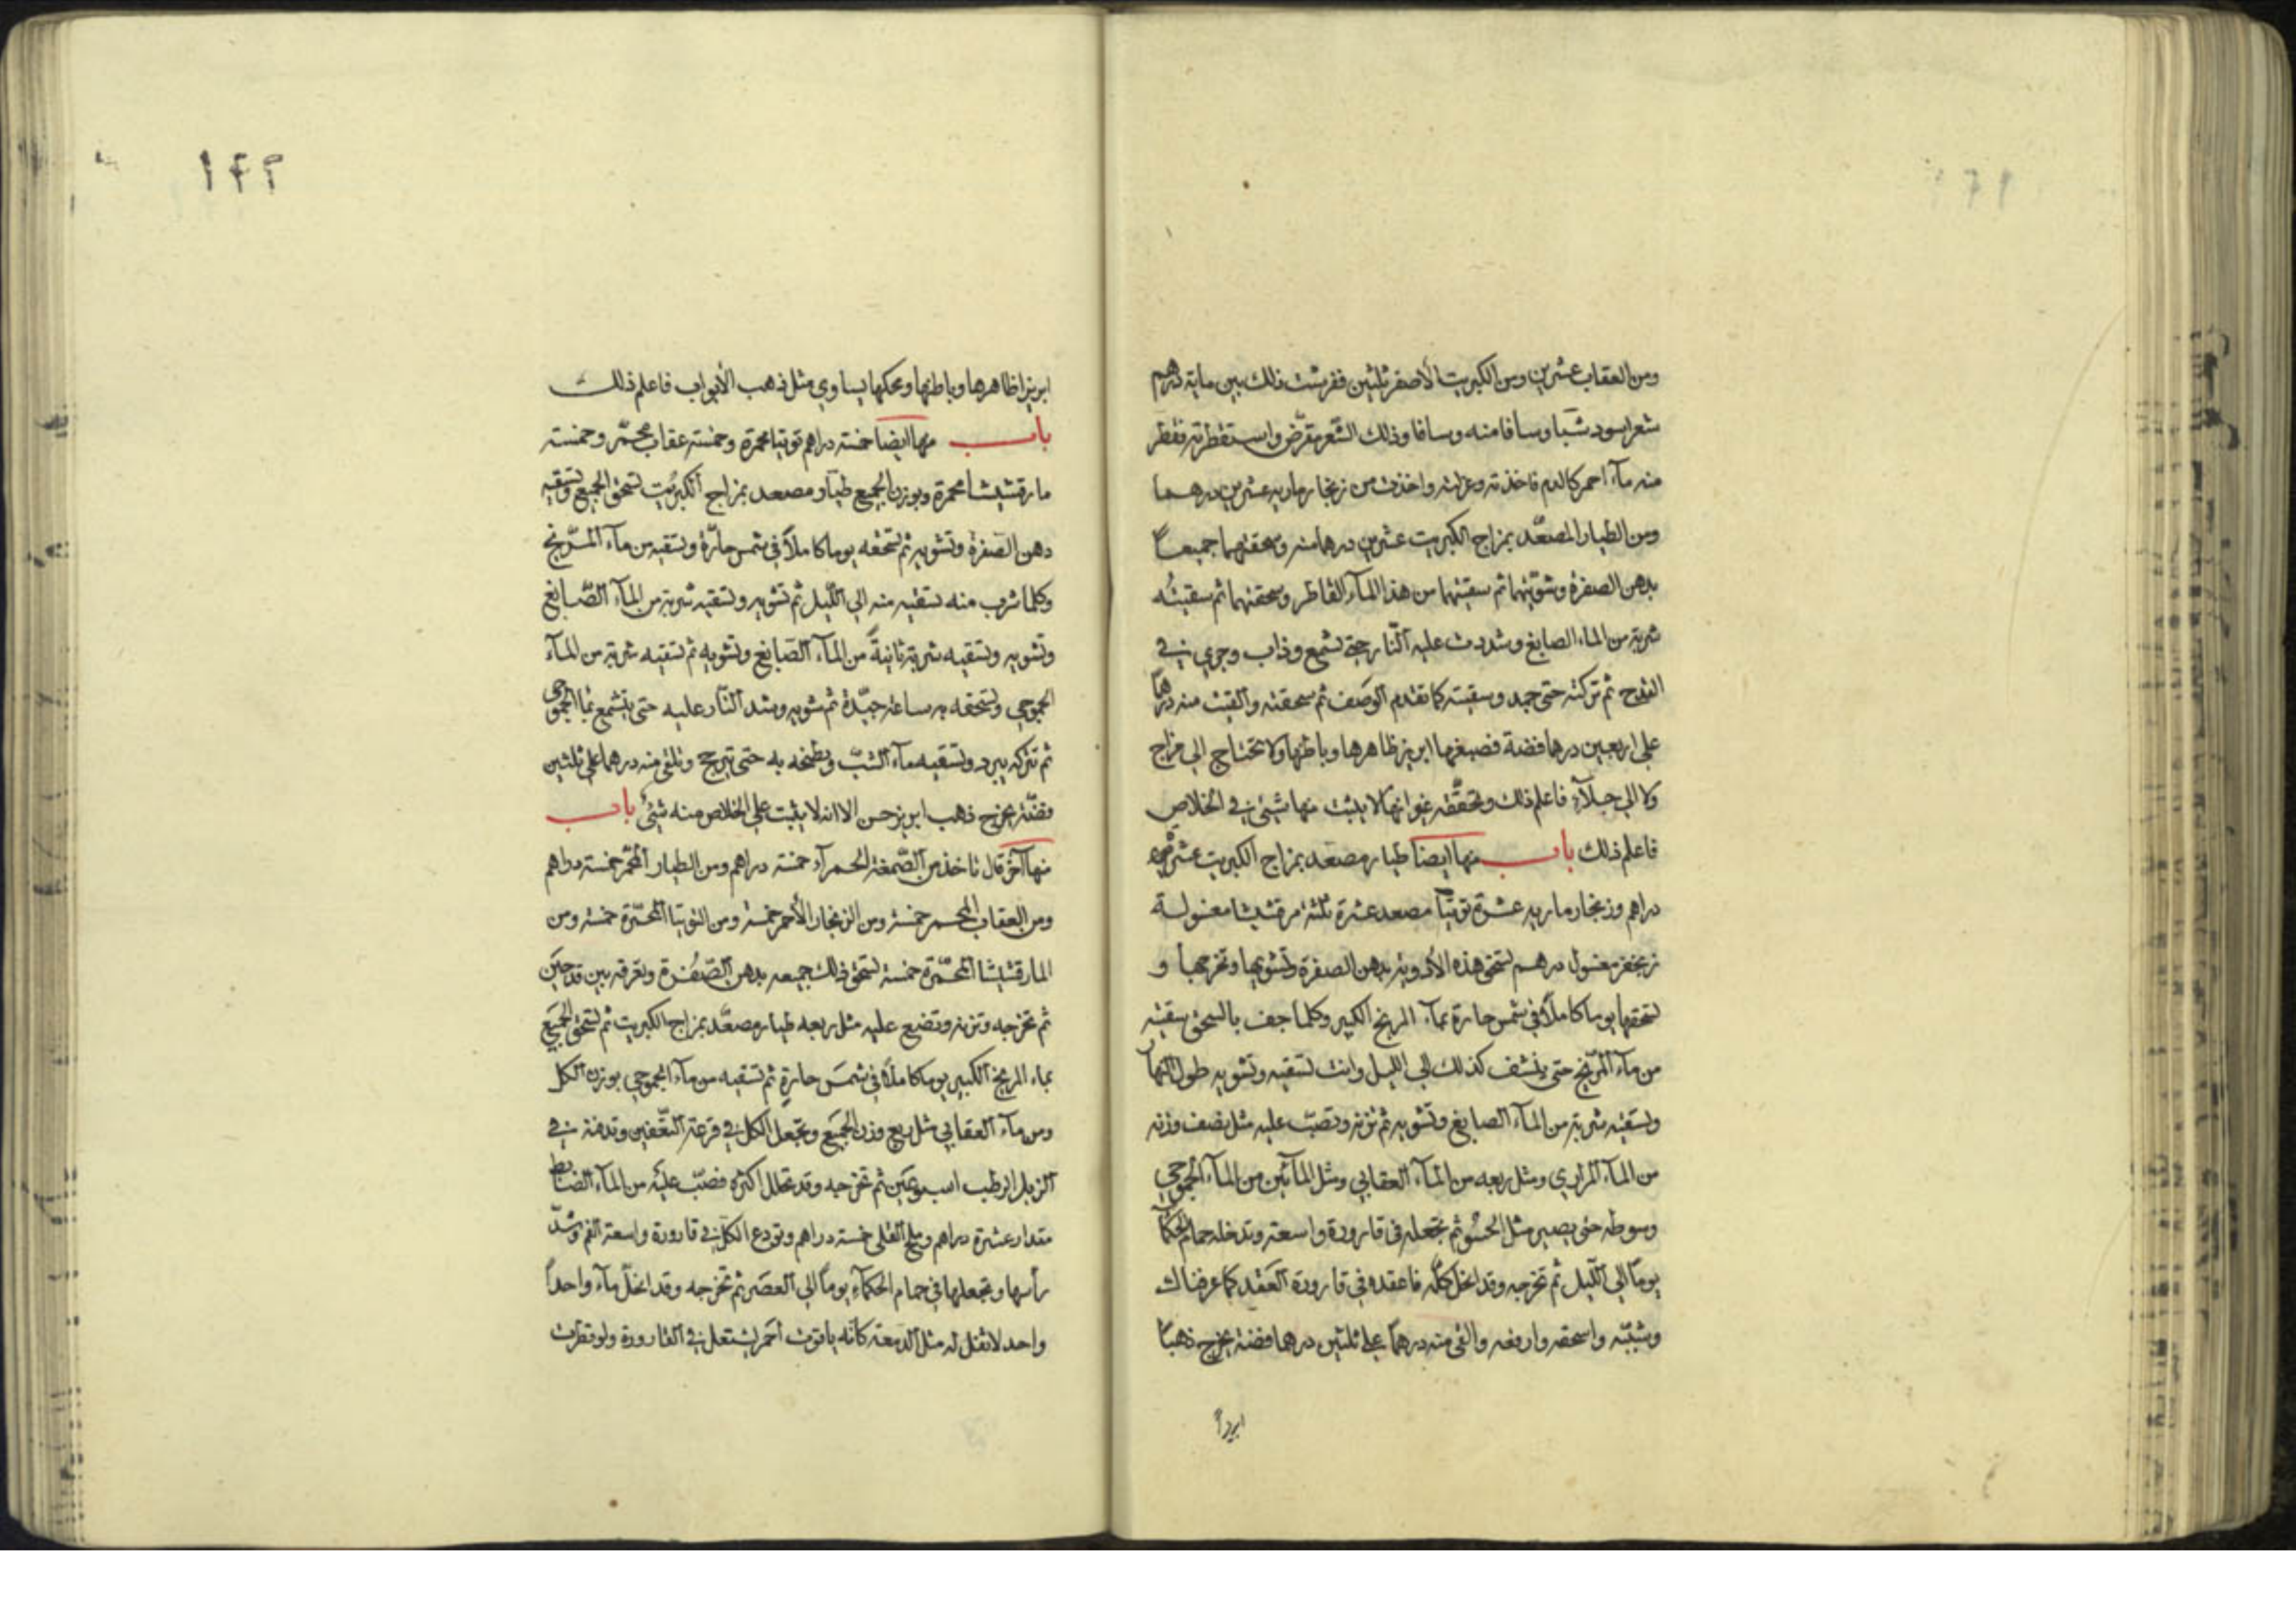 ١٤١
ومن العقاب عشرين ومن الكبريت الاصفر ثلثين ففرشت ذلك بين ماية درهم
شعر اسود شبا وسافا منه وسافا وذلك الشعر مقرّض واستقطرته فقطر
منه مآء احمر كالدم فاخذته وعزلته واخذت من زنجار ماريه عشرين درهما
ومن الطيار المصعّد بمزاج الكبريت عشرين درهما منه وسحقتهما جميعاً
بدهن الصفرة وشوّيتهما ثم سقيتهما من هذا المآء القاطر وسحقتهما ثم سقيتُه
شربة من الماء الصابغ وشددت عليه النّار حتى تشمع وذاب وجرى في
القدح ثم تركته حتى جمد وسقيته كما تقدم الوصف ثم سحقته والقيت منه درهماً
على اربعين درهما فضة فصبغها ابريز ظاهرها وباطنها ولا تحتاج الى مزاج
ولا الى جلآء فاعلم ذلك وتحققه غير انها لا يثبت منها شيئ في الخلاص
فاعلم ذلك باب منها ايضا طيار مصعد بمزاج الكبريت عشرة
دراهم وزنجار ماريه عشرة توتيآ مصعد عشرة ثلثة مرقشيشا مغسولة
زنجفر مغسول درهم تسحق هذه الأدوية بدهن الصفرة وتشويها وتخرجها و
تسحقها يوما كاملاً في شمس حارة بمآء المريخ الكبير وكلما جف بالسحق سقيته
من مآء المرّيخ حتى ينشف كذلك الى الليل وانت تسقيه وتشويه طول النهار
وتسقيه شربة من المآء الصابغ وتشويه ثم تزنه وتصبّ عليه مثل نصف وزنه
من المآء المراري ومثل ربعه من المآء العقابي ومثل المآئين من المآء الجموجي
وسوطه حتى يصير مثل الحسُو ثم تجعله في قارورة واسعة وتدخله حمام الحكمآ
يوماً الى اللّيل ثم تخرجه وقد انحل كلّه فاعقده في قارورة العَقد كما عرفناك
وشبّبه واسحقه وارفعه والق منه درهماً على ثلثين درهما فضة يخرج ذهباً
ابريزاً
١٤٢
ابريزا ظاهرها وباطنها ومحكها يساوي مثل ذهب الأبواب فاعلم ذلك
باب منها ايضا خمسة دراهم توتيا محمرة وخمسة عقاب محمّر وخمسة
مارقشيشا محمرة وبوزن الجميع طيّار مصعد بمزاج الكبريت تسحق الجميع وتسقيه
دهن الصفرة وتشويه ثم تسحقه يوما كاملاً في شمس حارّة وتسقيه من مآء المرّيخ
وكلما شرب منه تسقيه منه الى اللّيل ثم تشويه وتسقيه شربة من المآء الصّابغ
وتشويه وتسقيه شربة ثانيةً من المآء الصّابغ وتشويه ثم تسقيه شربة من المآء
الجموجي وتسحقه به ساعة جيّدة ثم تشويه وتشد النّار عليه حتى يتشمع بماء الجموجي
ثم تتركه يبرد وتسقيه مآء الشبّ وتطبخه به حتى تبريح وتلقى منه درهما على ثلثين
فضّة يخرج ذهب ابريز حسن الا انه لا يثبت على الخلاص منه شيئ باب
منها آخر قال تاخذ من الصّمغة الحمرآء خمسة دراهم ومن الطيار المحمّر خمسة دراهم
ومن العقاب المحمر خمسة ومن الزنجار الأحمر خمسة ومن التوتيا المحمّرة خمسة ومن
المارقشيشا المحمّرة خمسة تسحق ذلك جميعه بدهن الصّفرة وتغرقه بين قدحين
ثم تخرجه وتزنه وتضع عليه مثل ربعه طيار مصعّد بمزاج الكبريت ثم تسحق الجميع
بماء المريخ الكبير يوما كاملاً في شمس حارة ثم تسقيه من مآء الجموجي بوزن الكل
ومن مآء العقابي مثل ربع وزن الجميع وتجعل الكل في قرعة التّعفين وتدفنه في
الزبل الرطب اسبوعين ثم تخرجه وقد تحلل اكثره فصبّ عليه من المآء الضابط
مقدار عشرة دراهم وملح القلي خمسة دراهم وتودع الكل في قارورة واسعة الفم وشدّ
رأسها وتجعلها في حمام الحكمآء يوماً الى العصَر ثم تخرجه وقد انحلّ مآء واحداً
واحد لا ثفل له مثل الدمعة كأنه ياقوت أحمر يشتعل في القارورة ولو قطرت